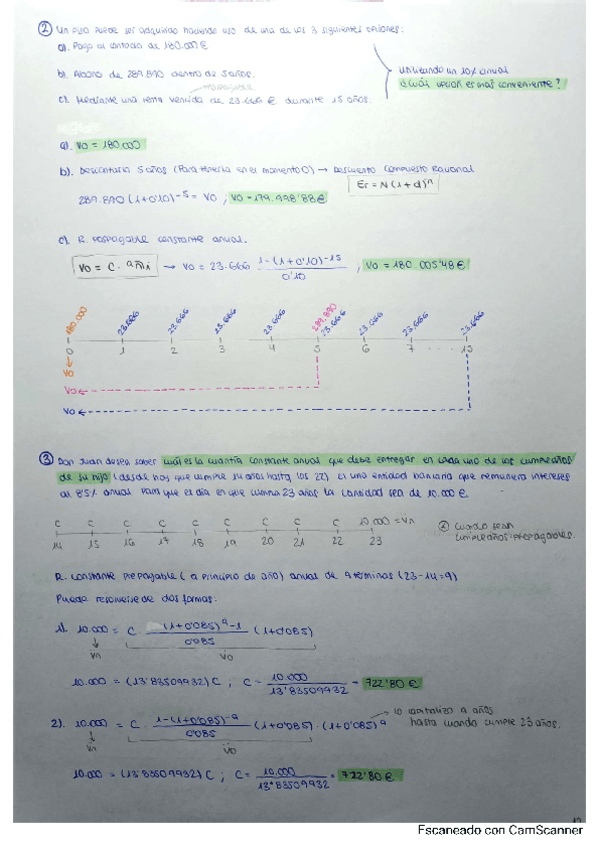 ② Un piso puede ser adquirido haciendo uso de una de las 3 siguientes opciones:
a). Pago al contado de 180.000 €
b). Abono de 289.890 dentro de 5 años.
Utilizando un 10% anual
¿Cuál opción es más conveniente?
pospagable
c). Mediante una renta vencida de 23.666 € durante 15 años.
a). Vo = 180.000
b). Descontaría 5 años (Para traerla en el momento 0) → Descuento Compuesto Racional
Er = N(1+d)ⁿ
289.890 (1+0'10)⁻⁵ = Vo ; Vo = 179.998'88 €
c). R. Pospagable constante anual.
Vo = C · añi → Vo = 23.666 1-(1+0'10)⁻¹⁵ / 0'10 , Vo = 180.005'48 €
180.000 23.666 23.666 23.666 23.666 289.890 23.666 23.666 23.666 23.666
0 1 2 3 4 5 6 7 ... 15
Vo
Vo
Vo
③ Don Juan desea saber cuál es la cuantía constante anual que debe entregar en cada uno de los cumpleaños
de su hijo (desde hoy que cumple 14 años hasta los 22) a una entidad bancaria que remunera intereses
al 8'5% anual para que el día en que cumpla 23 años la cantidad sea de 10.000 €.
C C C C C C C C C 10.000 = Vn
14 15 16 17 18 19 20 21 22 23
cuando sean
cumpleaños: prepagables.
R. Constante prepagable (a principio de año) anual de 9 términos (23-14=9)
Puede resolverse de dos formas:
1). 10.000 = C · (1+0'085)⁹-1 / 0'085 (1+0'085)
Vn Vo
10.000 = (13'83509932) C ; C = 10.000 / 13'83509932 = 722'80 €
2). 10.000 = C 1-(1+0'085)⁻⁹ / 0'085 (1+0'085) · (1+0'085)⁹
lo capitalizo 9 años
hasta cuando cumple 23 años.
Vn Vo
10.000 = (13'83509932) C ; C = 10.000 / 13'83509932 = 722'80 €
Escaneado con CamScanner